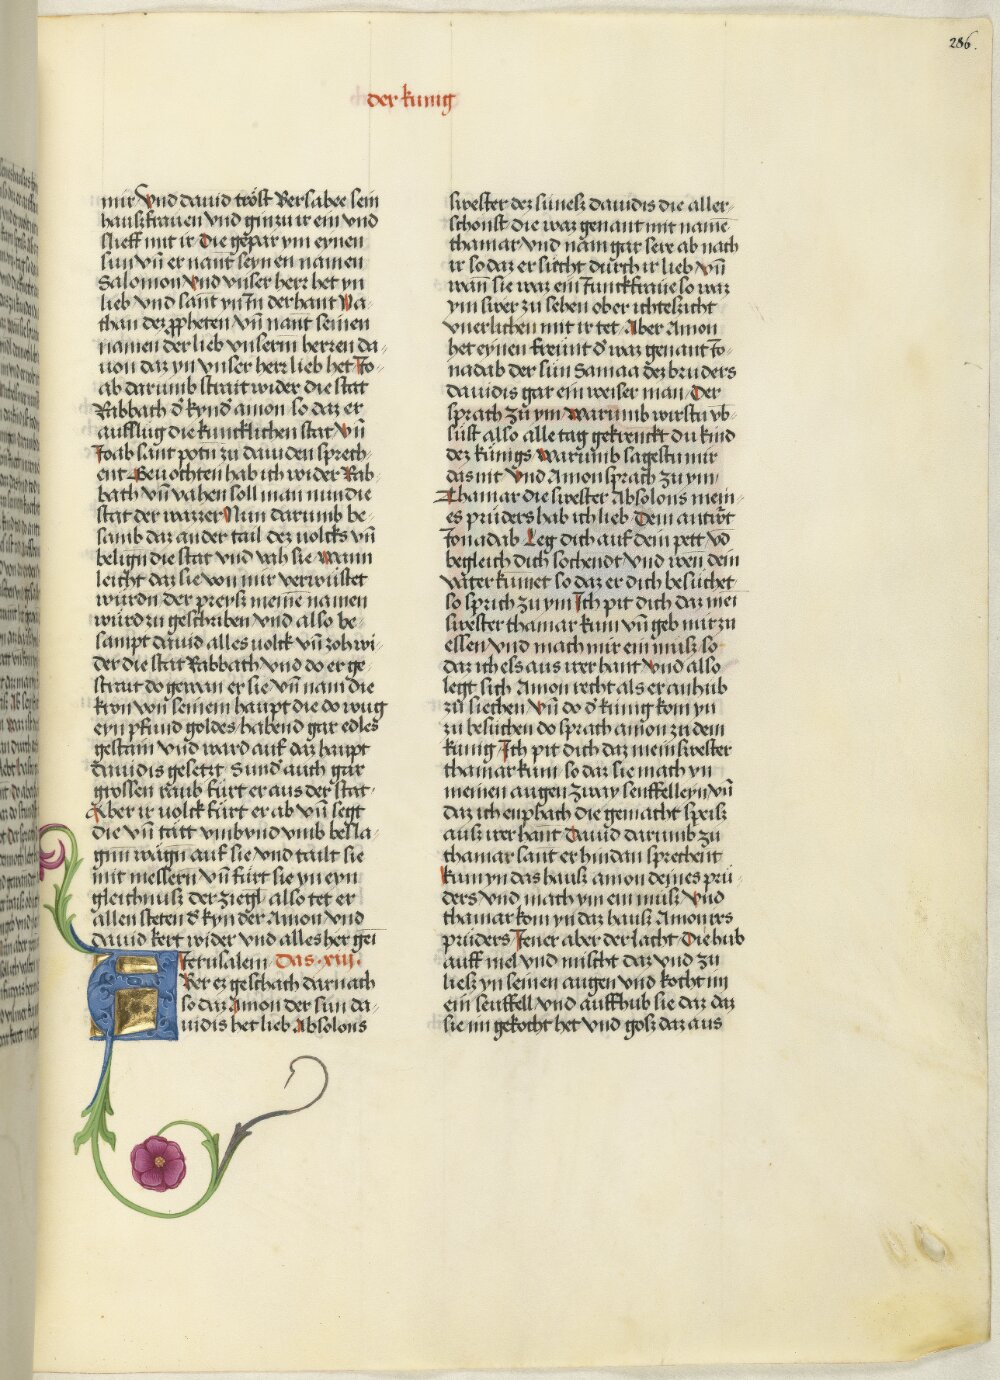 286.
der kunig
mir Vnd dauid tröst Bersabee sein
hauszfrauen vnd ging zu ir ein vnd
slieff mit ir Die gepar ym eynen
sun vñ er nant seynen namen
Salomon Vnd vnser herr het yn
lieb vnd sant yn In der hant Na-
than dez ꝓpheten vñ nant seinen
namen der lieb vnserm herren da-
uon daz yn vnser herr lieb het Jo-
ab darumb strait wider die stat
Rabbath d kynd amon so daz er
aufflug die kuncklichen stat Vñ
Joab sant potn zu dauiden sprech-
ent Gevochten hab ich wider Rab-
bath vñ vahen soll man nun die
stat der wazzer Nun darumb be-
samb daz ander tail dez volcks vñ
belign die stat vnd vah sie Wann
leicht daz sie von mir verwüstet
würdn der preysz meine namen
würd zu geschriben vnd also be-
sampt dauid alles volck vñ zoh wi-
der die stat Rabbath vnd do er ge-
strait do gewan er sie vñ nam die
kron von seinem haupt die do wug
eyn pfund goldes habend gar edles
gestain vnd ward auf daz haupt
dauidis gesetzt Sund auch gar
grossen raub fürt er aus der stat
Aber ir volck fürt er ab vñ segt
die vñ tätt vmb vnd vmb besla-
gnn wägn auf sie vnd tailt sie
mit messern vñ fürt sie yn eyn
gleichnusz der ziegl also tet er
allen steten d kynder Amon vnd
dauid kert wider vnd alles her gei
Jerusalem Das .xiii.
Aber ez geschach darnach
so daz Amon der sun da-
uidis het lieb Absolons
swester dez sunesz dauidis die aller-
schonst die waz genant mit name
thamar vnd nam gar sere ab nach
ir so daz er sücht durch ir lieb Vñ
wañ sie waz ein Junckfraue so waz
ym swer zu sehen ober ichteszicht
vnerlichen mit ir tet Aber Amon
het eynen freünt d waz genant Jo-
nadab der sun Samaa dez bruders
dauidis gar ein weiser man Der
sprach zu ym Warumb wirstu vb-
süst also alle tag gekrenckt du kind
dez künigs Warumb sagestu mir
das nit Vnd Amon sprach zu ym
Thamar die swester Absolons mein-
es prüders hab ich lieb Dem antwrt
Jonadab Leg dich auf dein pett vd
begleich dich sochendt vnd wen dein
vater kumet so daz er dich besüchet
so sprich zu ym Ich pit dich daz mei
swester thamar kum vñ geb mir zu
essen vnd mach mir ein müsz so
daz ich ess aus irer hant Vnd also
legt sich Amon recht als er anhub
zu siechen Vñ do d kunig kom yn
zu besüchen do sprach amon zu dem
kunig Ich pit dich daz mein swester
thamar kum so daz sie mach yn
meinen augen zway seuffelleyn vñ
daz ich enpbach die gemacht speisz
ausz irer hant Dauid darumb zu
thamar sant er hindan sprechent
kum yn das hausz amon deines prü-
ders vnd mach ym ein müsz Vnd
thamar kom yn daz hausz Amon irs
prüders Jener aber der lacht Die hub
auff mel vnd mischt daz vnd zu
liesz yn seinen augen vnd kocht im
ein seuffell vnd auffhub sie daz daz
sie im gekocht het vnd gosz daz aus